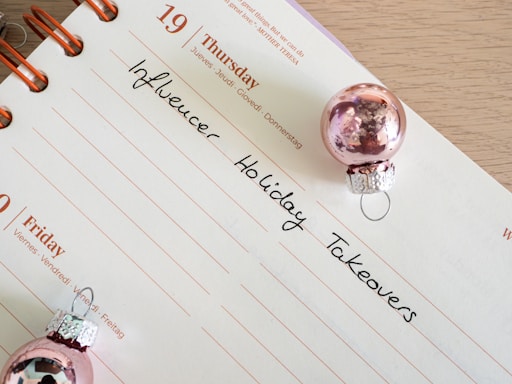 great things. But we can do
great love." -MOTHER TERESA
19 Thursday
Jeudi · Giovedì · Donnerstag
Influencer Holiday Takeovers
Friday
Viernes · Vendredi · Venerdì · Freitag